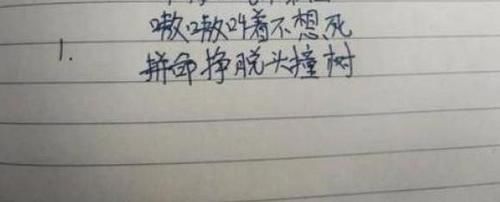 嗷嗷叫着不想死
1.
拼命挣脱头撞树